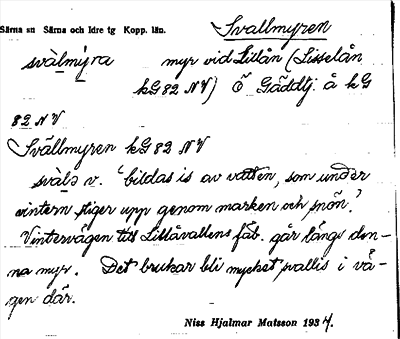 Svallmyren
Särna sn Särna och Idre tg Kopp. län.
svàlmỳra myr vid Lillån (Lisselån
kG 82 NV) Ö Gäddtj. å kG
82 NV
Svällmyren kG 82 NV
svälə v. 'bildas is av vatten, som under
vintern stiger upp genom marken och snön.'
Vintervägen till Lillåvallens fäb. går längs den-
na myr. Det brukar bli mycket svallis i vä-
gen där.
Niss Hjalmar Matsson 1934.